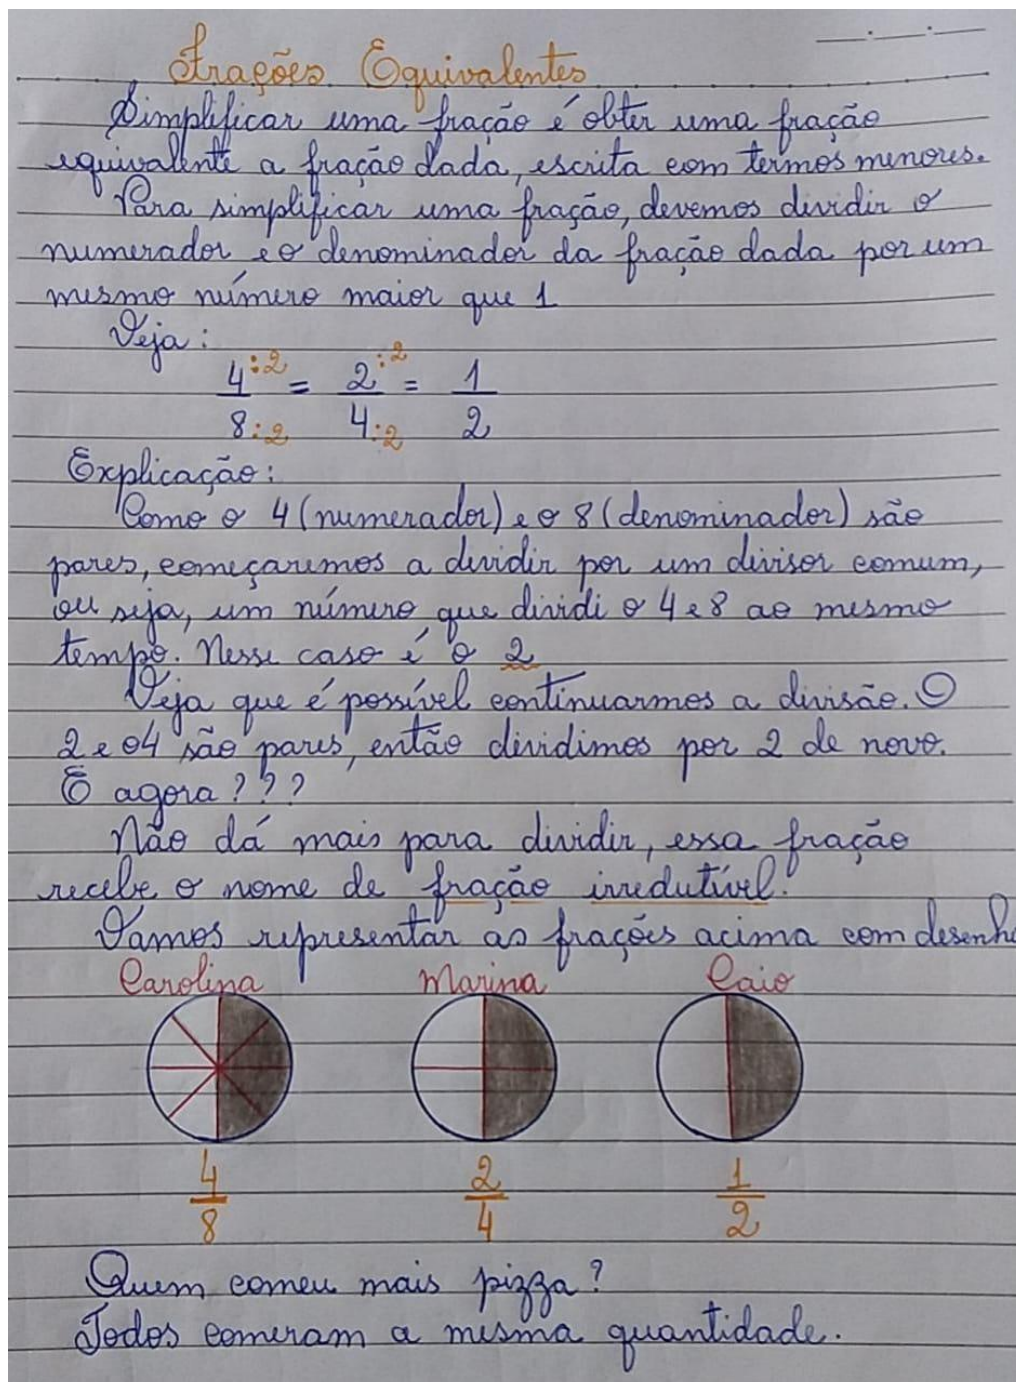 Frações Equivalentes
Simplificar uma fração é obter uma fração
equivalente a fração dada, escrita com termos menores.
Para simplificar uma fração, devemos dividir o
numerador e o denominador da fração dada por um
mesmo número maior que 1
Veja:
4:2 = 2:2 = 1
8:2 4:2 2
Explicação:
Como o 4 (numerador) e o 8 (denominador) são
pares, começaremos a dividir por um divisor comum,
ou seja, um número que dividi o 4 e 8 ao mesmo
tempo. Nesse caso é o 2
Veja que é possível continuarmos a divisão. O
2 e o 4 são pares, então dividimos por 2 de novo.
E agora???
Não dá mais para dividir, essa fração
recebe o nome de fração irredutível.
Vamos representar as frações acima com desenh
Carolina Marina Caio
4 2 1
8 4 2
Quem comeu mais pizza?
Todos comeram a mesma quantidade.